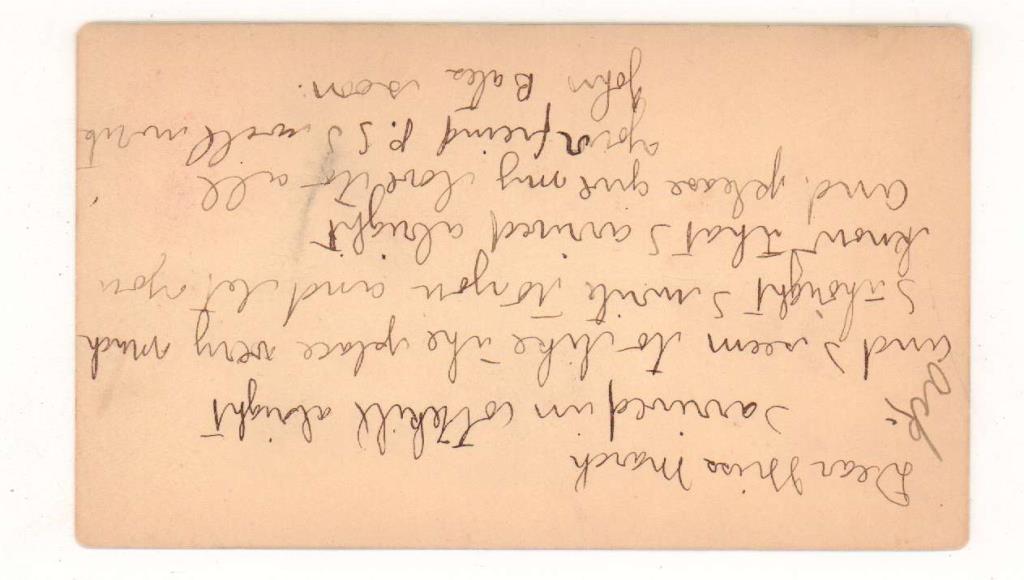 Dear Miss March
Ack.
I arrived in Cobleskill alright
and I seem to like the place very much
I thought I write to you and let you
know that I arrived alright
and please give my love to all
your freind P.S I will write
John Bates soon.